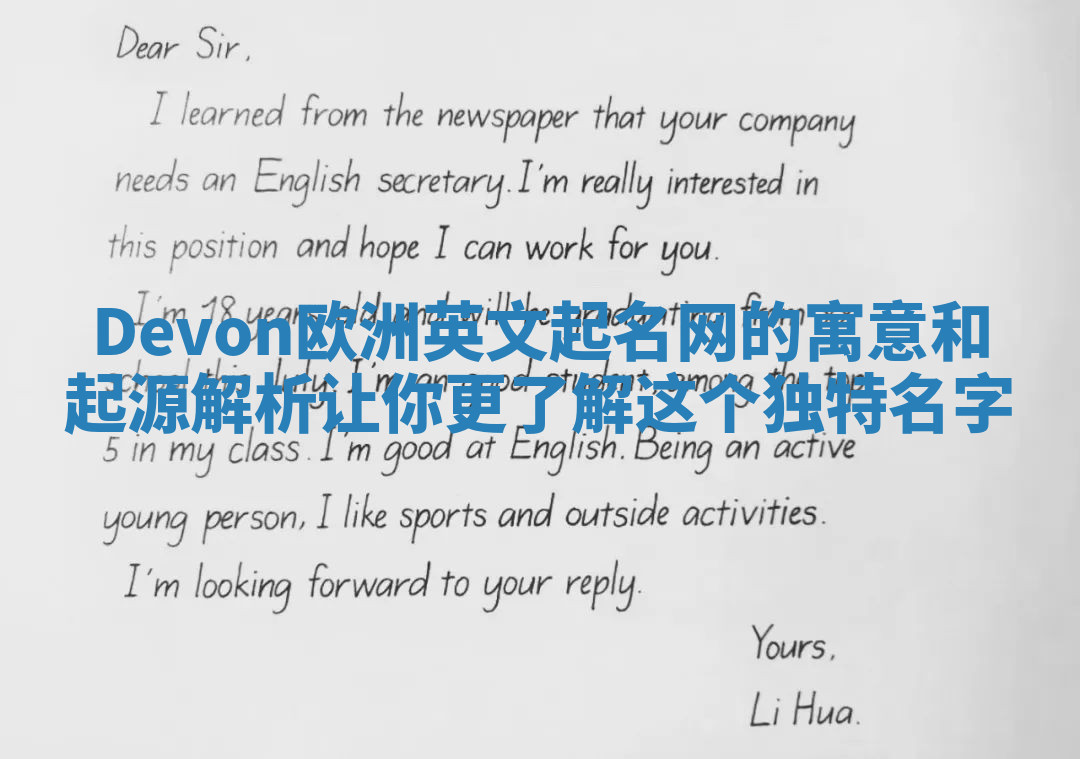 Dear Sir,
I learned from the newspaper that your company
needs an English secretary. I'm really interested in
this position and hope I can work for you.
I'm 18 years old and will be graduating from
Devon欧洲英文起名网的寓意和
school this July. I'm an good student, among the top
起源解析让你更了解这个独特名字
5 in my class. I'm good at English. Being an active
young person, I like sports and outside activities.
I'm looking forward to your reply.
Yours,
Li Hua.